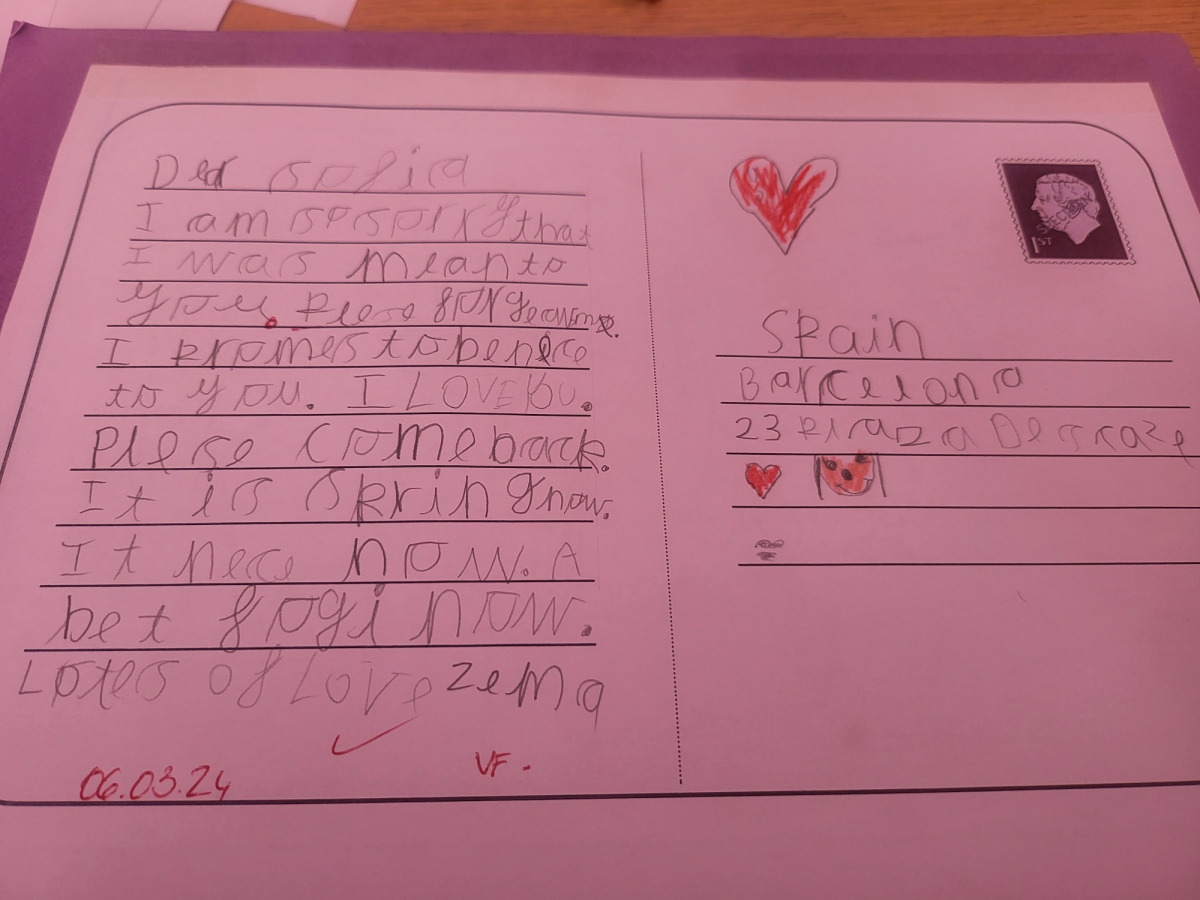 Der sofia
I am so sorry that
I was mean to
you. Plese forgeavme.
I promes to benice
to you. I LOVE YOU.
Plese come back.
It is spring now.
It nece now. A
bet fogi now.
Lotes of Love zema
06.03.24
VF.
1ST
Spain
Barcelona
23 Plaza De